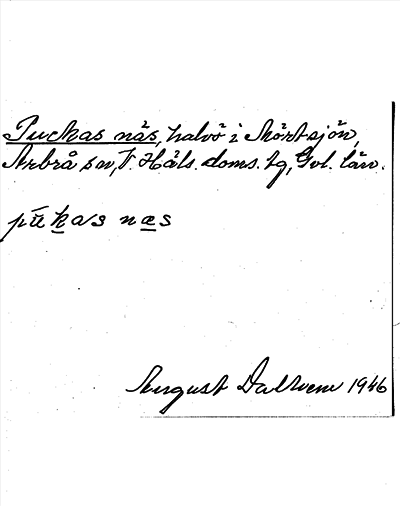 Puckas näs, halvö i Mörtsjön,
Arbrå sn, V. Häls. doms. tg, Gvl. län.
pūkas næs
August Dalhem 1946